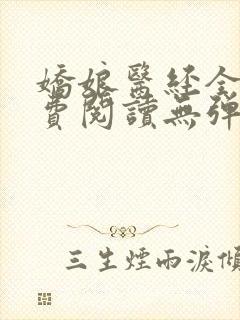 嬌娘醫經全
費閱讀無彈
三生煙雨淚傾